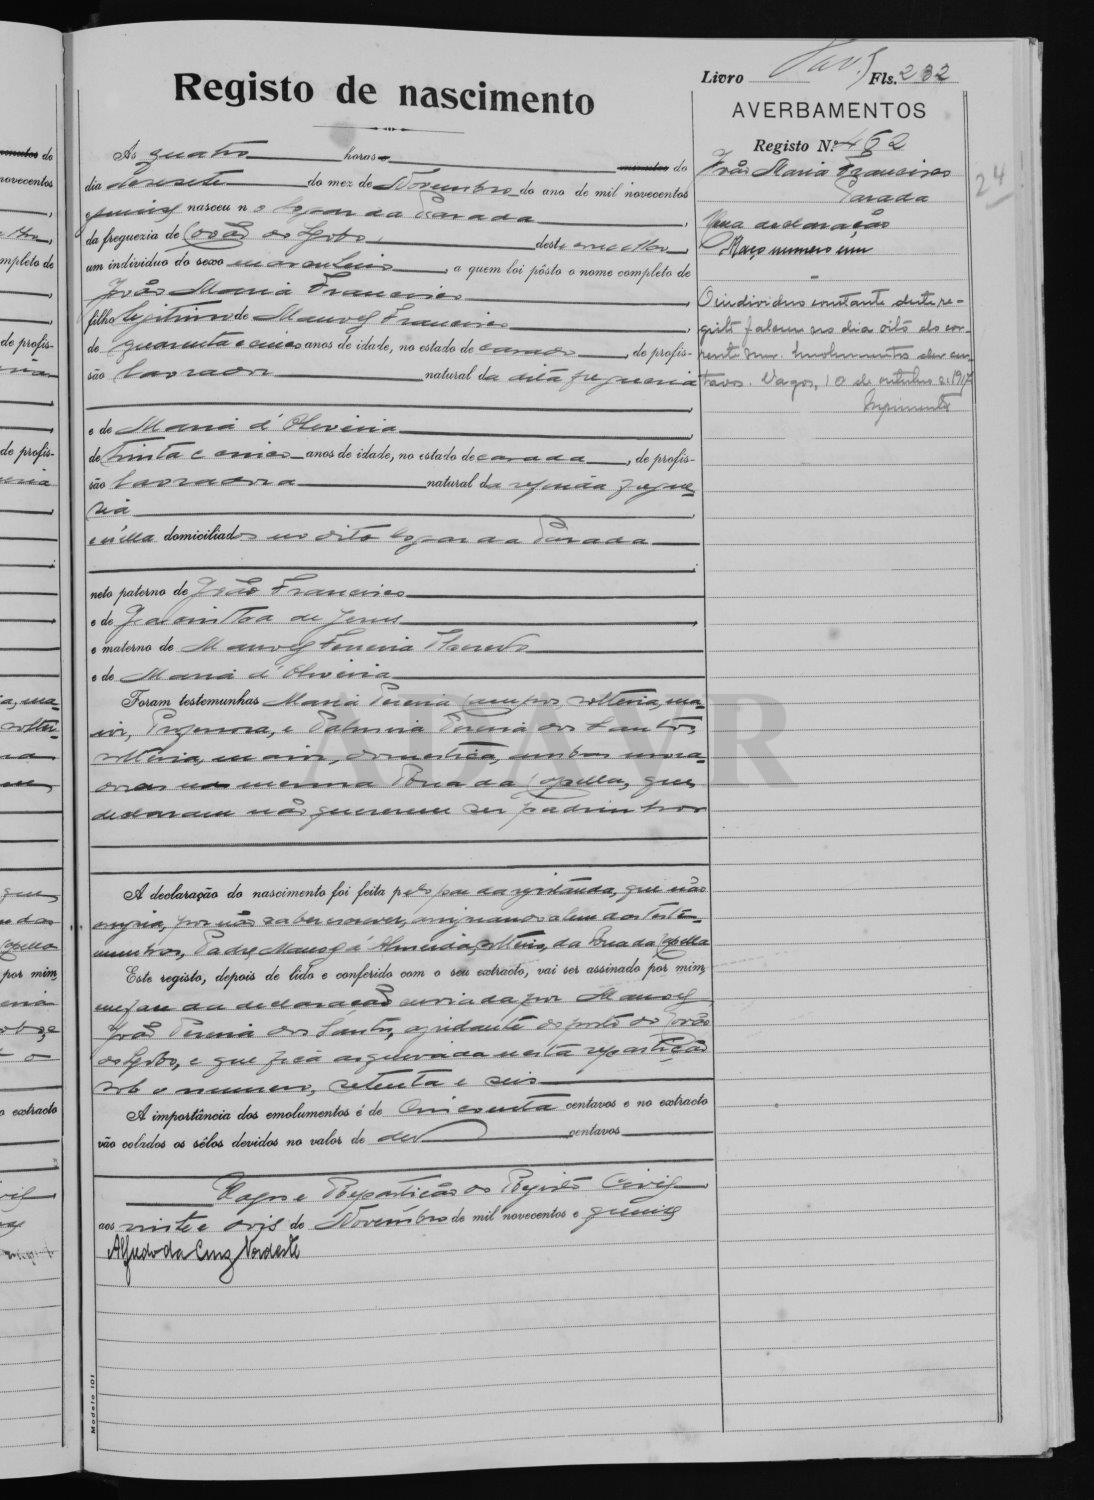 Livro Nav.5 Fls. 232
Registo de nascimento
AVERBAMENTOS
Registo N.º 462
João Maria Francisco
Parada
Uma declaração
Março numero um
24
O individuo constante deste re-
gisto faleceu no dia oito do cor-
rente mez. Emolumentos dez cen-
tavos. Vagos, 10 de outubro de 1917
As quatro horas e minutos do
dia dezesete do mez de Novembro do ano de mil novecentos
e quinze nasceu no logar da Parada
da freguezia de Covão do Lobo, deste concelho,
um individuo do sexo masculino, a quem foi pôsto o nome completo de
João Maria Francisco
filho legitimo de Manoel Francisco
de quarenta e cinco anos de idade, no estado de casado, de profis-
são lavrador natural da dita freguezia
e de Maria d'Oliveira
de trinta e cinco anos de idade, no estado de casada, de profis-
são lavradora natural da referida fregue-
zia
e n'ella domiciliados no dito logar da Parada
neto paterno de João Francisco
e de Jacintha de Jesus
e materno de Manoel Ferreira Azevedo
e de Maria d'Oliveira
Foram testemunhas Maria Pereira Campos, solteira, ma-
ior, Professora, e Palmira Pereira dos Santos,
solteira, maior, domestica, ambas mora-
doras na mesma Póvoa da Capella, que
declararam não quererem ser padrinhos
ADAVR
A declaração do nascimento foi feita pelo pae da registanda, que não
assigna, por não saber escrever, assignando alem das teste-
munhas, Padre Manoel d'Almeida, solteiro, da Póvoa da Capella
Este registo, depois de lido e conferido com o seu extracto, vai ser assinado por mim,
em face da declaração enviada por Manoel
João Pereira dos Santos, ajudante do posto do Covão
do Lobo, e que fica arquivada nesta repartição
sob o numero, setenta e seis
A importância dos emolumentos é de cincoenta centavos e no extracto
vão colados os sêlos devidos no valor de dez centavos
Vagos e Repartição do Registo Civil
aos vinte e dois de Novembro de mil novecentos e quinze
Alfredo da Cruz Nordeste
Modelo 101
minutos do
novecentos
completo de
de profis-
de profis-
Capella
por mim,
o extracto